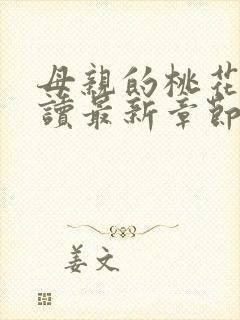 母親的桃花
讀最新章節
姜文